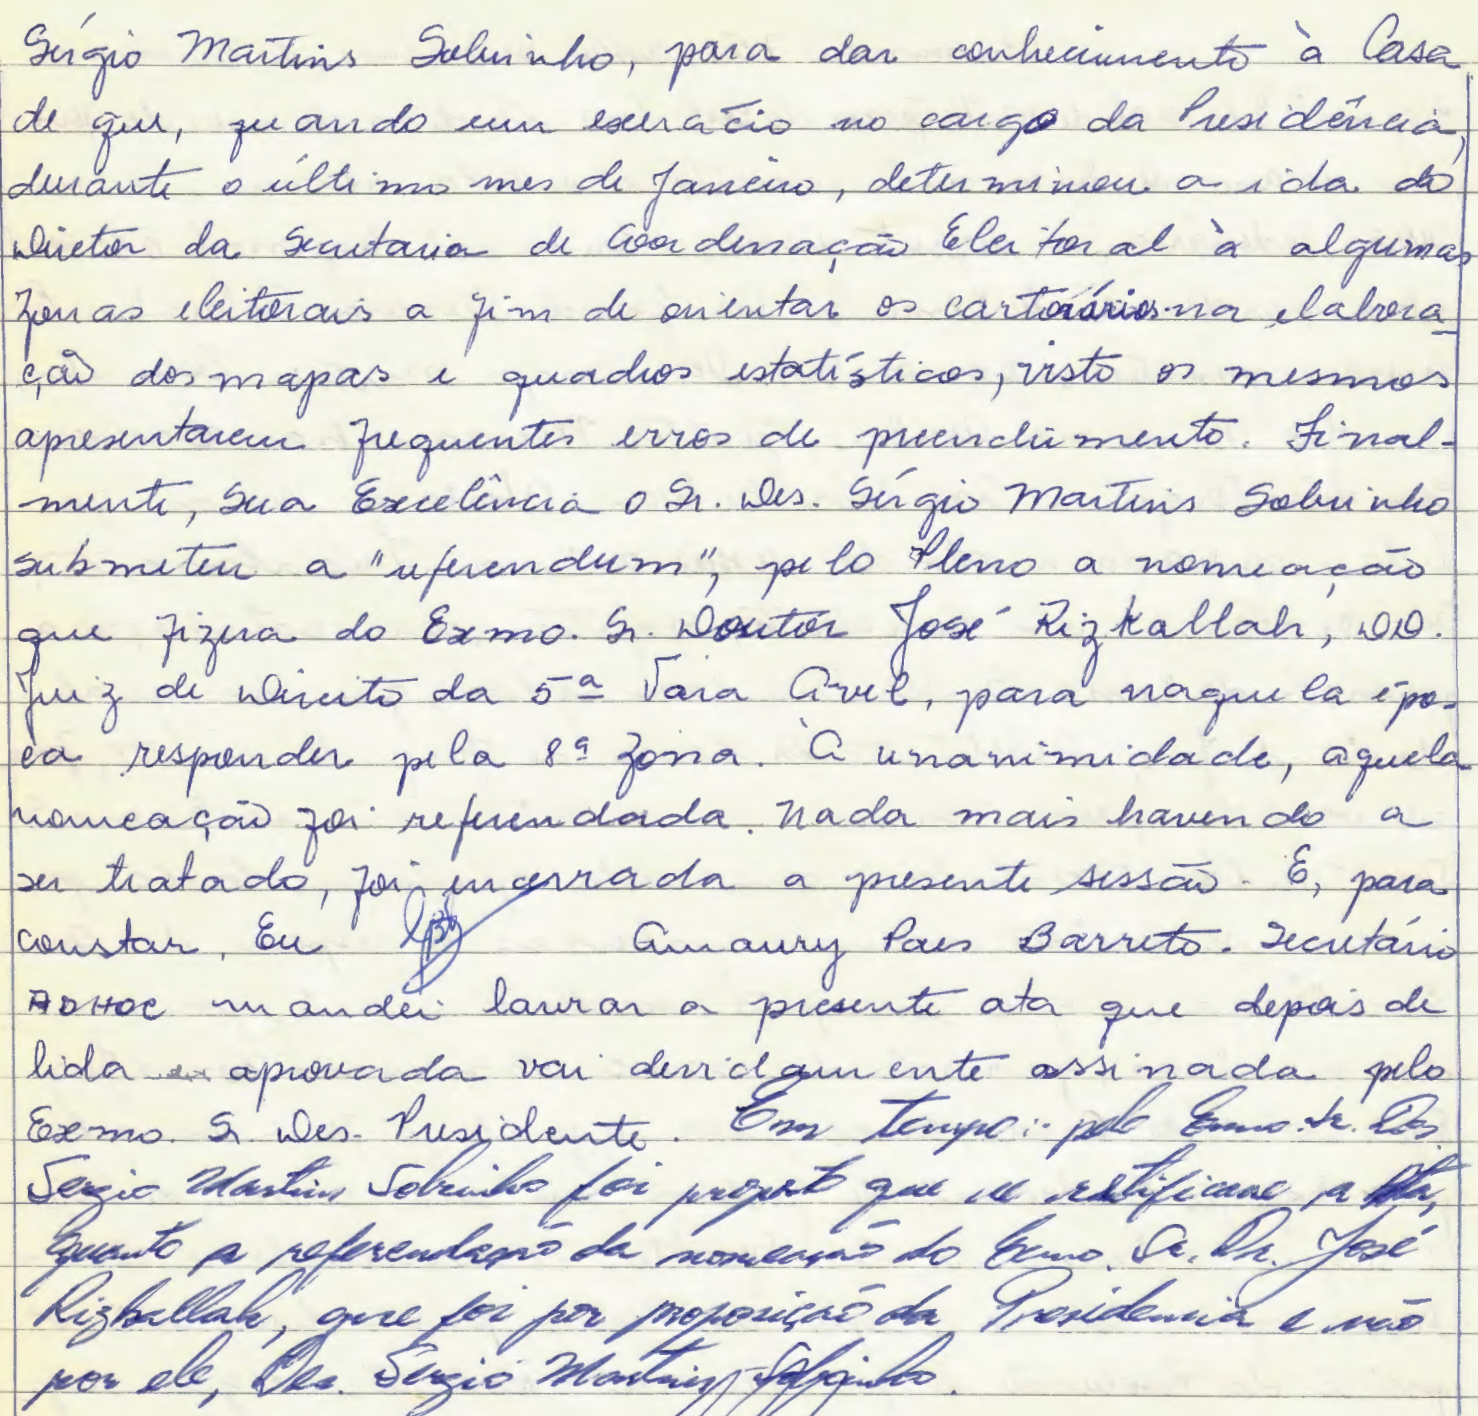 Sérgio Martins Sobrinho, para dar conhecimento à Casa
de que, quando em exercício no cargo da Presidência,
durante o último mes de Janeiro, determinou a ida do
Diretor da Secretaria de Coordenação Eleitoral à algumas
zonas eleitorais a fim de orientar os cartorários na elabora-
ção dos mapas e quadros estatísticos, visto os mesmos
apresentarem frequentes erros de preenchimento. Final-
mente, Sua Excelência o Sr. Des. Sérgio Martins Sobrinho
submeteu a "referendum", pelo Pleno a nomeação
que fizera do Exmo. Sr. Doutor José Rizkallah, DD.
Juiz de Direito da 5ª Vara Cível, para naquela épo-
ca responder pela 8ª zona. À unanimidade, aquela
nomeação foi referendada. Nada mais havendo a
ser tratado, foi encerrada a presente sessão. E, para
constar, Eu Amaury Paes Barreto. Secretário
ADHOC mandei lavrar a presente ata que depois de
lida aprovada vai devidamente assinada pelo
Exmo. Sr. Des. Presidente. Em tempo: pelo Exmo. Sr. Des.
Sergio Martins Sobrinho foi proposto que se retificasse a Ata,
quanto a referendação da nomeação do Exmo. Sr. Dr. José
Rizkallah, que foi por proposição da Presidencia e não
por ele, Des. Sergio Martins Sobrinho.